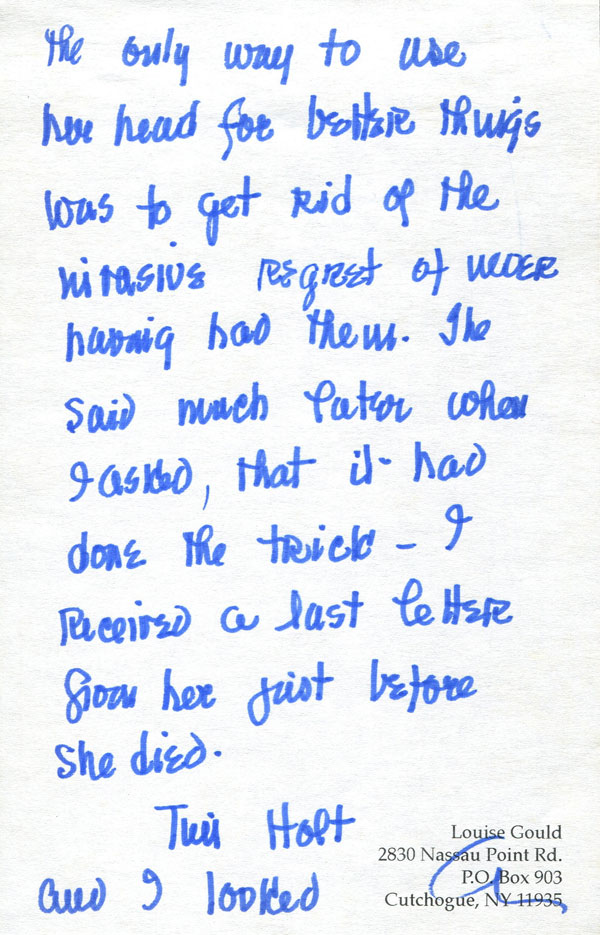 The only way to use
her head for better things
was to get rid of the
invasive regret of never
having had them. She
said much later when
I asked, that it had
done the trick – I
received a last letter
from her just before
she died.
Holt
and I looked
Louise Gould
2830 Nassau Point Rd.
P.O. Box 903
Cutchogue, NY 11935